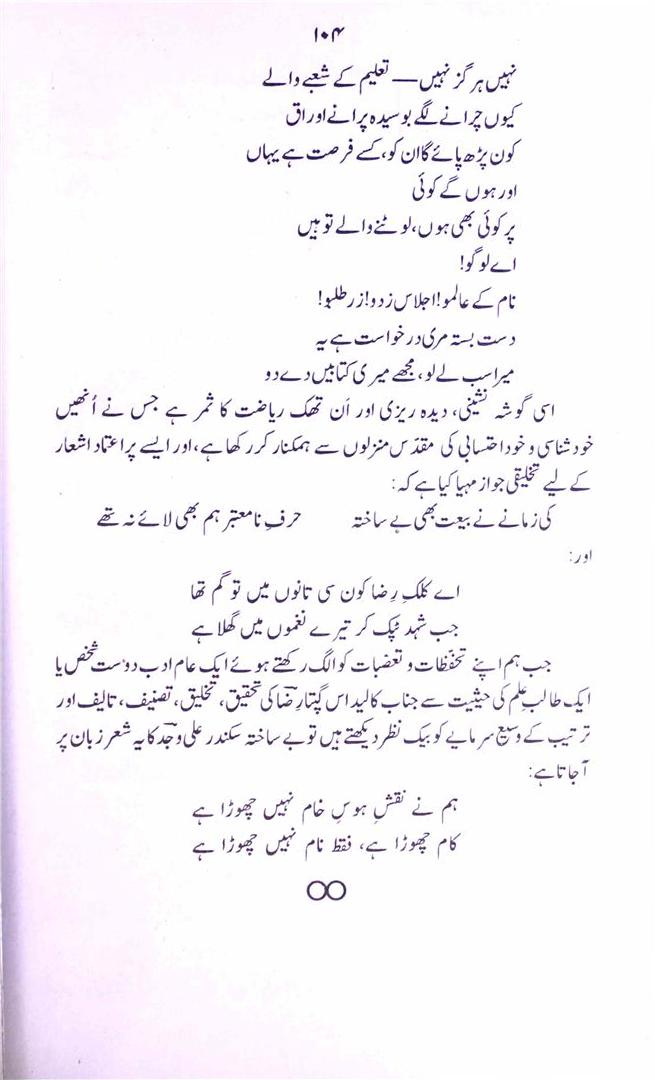 ۱۰۴
نہیں ہرگز نہیں — تعلیم کے شعبے والے
کیوں چرانے لگے بوسیدہ پرانے اوراق
کون پڑھ پائے گا ان کو، کسے فرصت ہے یہاں
اور ہوں گے کوئی
پر کوئی بھی ہوں، لوٹنے والے تو ہیں
اے لوگو!
نام کے عالمو! اجلاس زدو! زر طلبو!
دست بستہ مری درخواست ہے یہ
میرا سب لے لو، مجھے میری کتابیں دے دو
اسی گوشہ نشینی، دیدہ ریزی اور اَن تھک ریاضت کا ثمر ہے جس نے اُنھیں
خود شناسی و خود احتسابی کی مقدّس منزلوں سے ہمکنار کر رکھا ہے، اور ایسے پر اعتماد اشعار
کے لیے تخلیقی جواز مہیا کیا ہے کہ:
کی زمانے نے بیعت بھی بے ساختہ حرفِ نامعتبر ہم بھی لائے نہ تھے
اور:
اے کلکِ رِضا کون سی تانوں میں تو گم تھا
جب شہد ٹپک کر تیرے نغموں میں گھلا ہے
جب ہم اپنے تحفّظات و تعصّبات کو الگ رکھتے ہوئے ایک عام ادب دوست شخص یا
ایک طالبِ علم کی حیثیت سے جناب کالیداس گپتا رِضاؔ کی تحقیق، تخلیق، تصنیف، تالیف اور
ترتیب کے وسیع سرمایے کو بیک نظر دیکھتے ہیں تو بے ساختہ سکندر علی وجدؔ کا یہ شعر زبان پر
آجاتا ہے:
ہم نے نقشِ ہوسِ خام نہیں چھوڑا ہے
کام چھوڑا ہے، فقط نام نہیں چھوڑا ہے